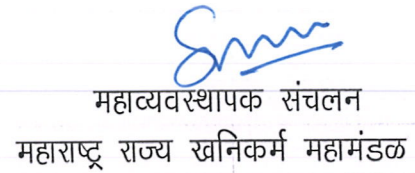 महाव्यवस्थापक संचलन
महाराष्ट्र राज्य खनिकर्म महामंडळ